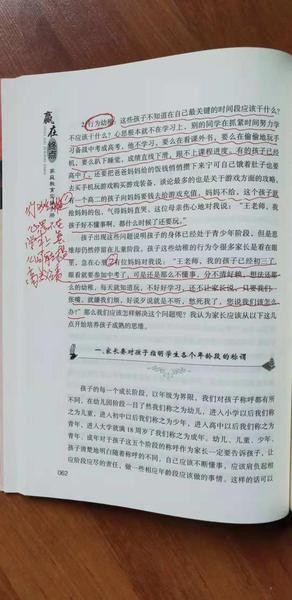 赢在
家庭教育
2.行为幼稚:这些孩子不知道在自己最关键的时间段应该干什么?
不应该干什么?心思根本就不在学习上,别的同学在抓紧时间努力学
习备战中考或高考,他不学习,要么在看课外书,要么在偷偷地玩手
机,要么趴下睡觉,成绩直线下滑,跟不上课程进度。有的孩子已经
高中了,还要把爸爸妈妈给的饭钱悄悄攒下来宁可自己饿着肚子也要
去买手机玩游戏购买游戏装备,谈论最多的也是关于游戏方面的攻略,
有一个高二的孩子向妈妈要钱去给游戏充值,妈妈不给,这个孩子就
捡妈妈的包,气得妈妈直哭,这位母亲伤心地对我说:“王老师,我
孩子怎么这样啊,都什么时候了还要玩。”
孩子出现这些问题说明孩子的身体已经处于青少年阶段,但是思
维却仍然停留在儿童阶段,孩子这些幼稚的行为令很多家长是看在眼
里,急在心里。有妈妈对我说:“王老师,我的孩子已经初三了,
眼看就要参加中考了,可是还是那么不懂事,分不清好赖,想法还那
么的幼稚,每天就知道玩,不好好学习,还不让家长说,只要我们一
张嘴,就嫌我们烦,好说歹说就是不听,愁死我了,您说我们该怎么
办?”那么我们应该怎样解决这个问题呢?我认为家长应该从以下这几
点开始培养孩子成熟的思维。
一、家长要对孩子指明学生各个年龄段的称谓
孩子的每一个成长阶段,以年级为界限,我们对孩子称呼都有所
不同,在幼儿园阶段一目了然我们称之为幼儿,进入小学以后我们称
之为儿童,进入初中以后我们称之为少年,进入高中以后我们称之为
青年,进入大学就满 18 周岁了我们称之为成年。幼儿、儿童、少年、
青年、成年对于孩子这五个阶段的称呼作为家长一定要告诉孩子,让
孩子清楚地明白随着称呼的不同,自己应该不断懂事,应该肩负起相
应阶段应尽的责任,做一些相应年龄段应该做的事情。这样的话可以
062